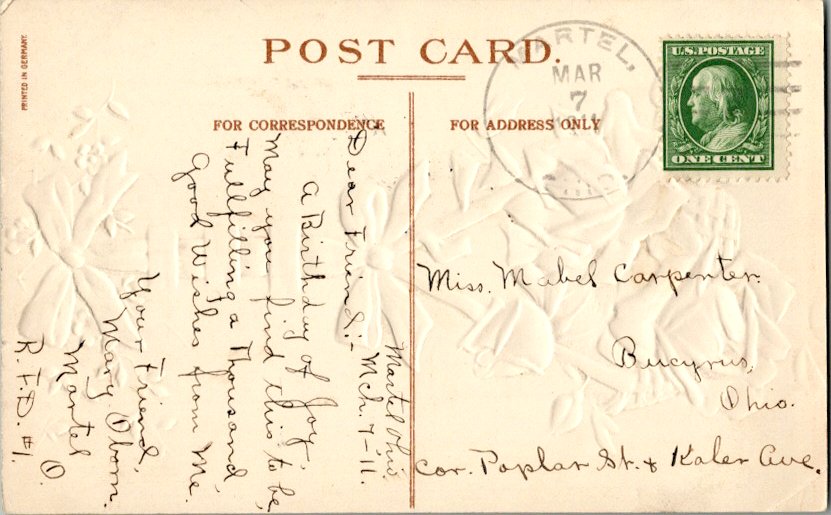 POST CARD.
PRINTED IN GERMANY.
FOR CORRESPONDENCE
FOR ADDRESS ONLY
MARTEL,
MAR
7
1911
O.
U.S. POSTAGE
ONE CENT
Martel Ohio.
Mch. 7-'11.
Dear Friend:-
A Birthday of Joy,
May you find this to be,
Fullfilling a Thousand
Good Wishes from Me.
Your Friend,
Mary Oborn.
Martel
O.
R.F.D. #1.
Miss. Mabel Carpenter.
Bucyrus,
Ohio.
Cor. Poplar St. & Kaler Ave.